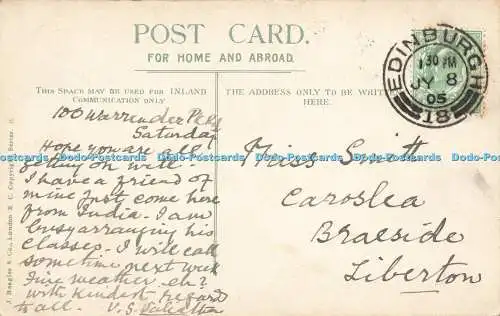 POST CARD.
FOR HOME AND ABROAD.
THIS SPACE MAY BE USED FOR INLAND
COMMUNICATION ONLY
THE ADDRESS ONLY TO BE WRITTEN
HERE.
EDINBURGH
1 30 PM
JY 8
05
18
100 Warrender Pk Rd
Saturday
Hope you are all
getting on well.
I have a friend of
mine just come here
from India. I am
busy arranging his
classes. I will call
sometime next week
Fine weather. eh?
With kindest regard
to all. V. S.
Miss Smith
Caroslea
Braeside
Liberton
J. Beagles & Co., London E.C. Copyright Series.
Dodo Postcards